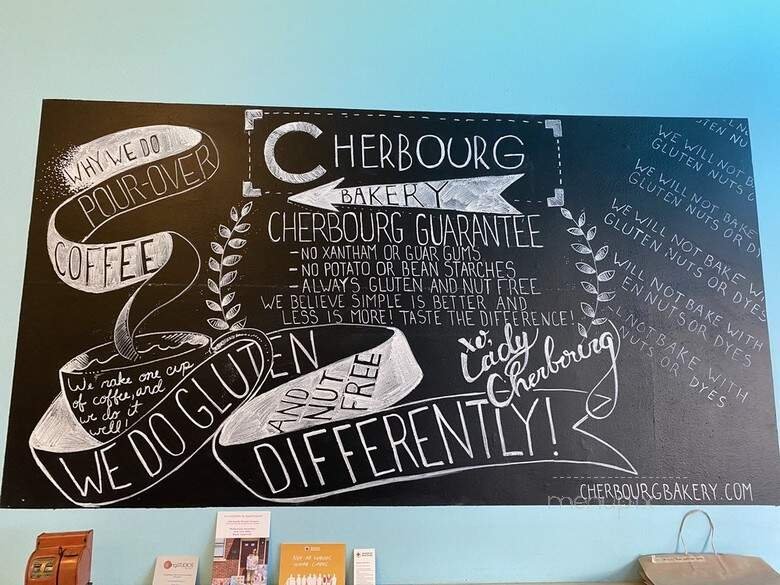 WHY WE DO
POUR-OVER
COFFEE
We make one cup
of coffee, and
we do it
well!
CHERBOURG
BAKERY
CHERBOURG GUARANTEE
- NO XANTHAM OR GUAR GUMS
- NO POTATO OR BEAN STARCHES
- ALWAYS GLUTEN AND NUT FREE
WE BELIEVE SIMPLE IS BETTER AND
LESS IS MORE! TASTE THE DIFFERENCE!
xo,
Lady
Cherbourg
WE DO GLUTEN
AND
NUT
FREE
DIFFERENTLY!
WE WILL NOT B
GLUTEN NUTS
WE WILL NOT BAKE
GLUTEN NUTS OR D
WE WILL NOT BAKE WI
GLUTEN NUTS OR DYES
WILL NOT BAKE WITH
EN NUTS OR DYES
NOT BAKE WITH
NUTS OR DYES
CHERBOURGBAKERY.COM